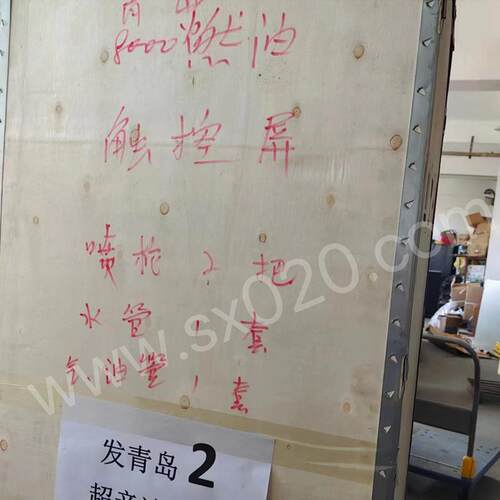 8000燃油
触控屏
喷枪2把
水管1套
气油管1套
www.sx020.com
发青岛2